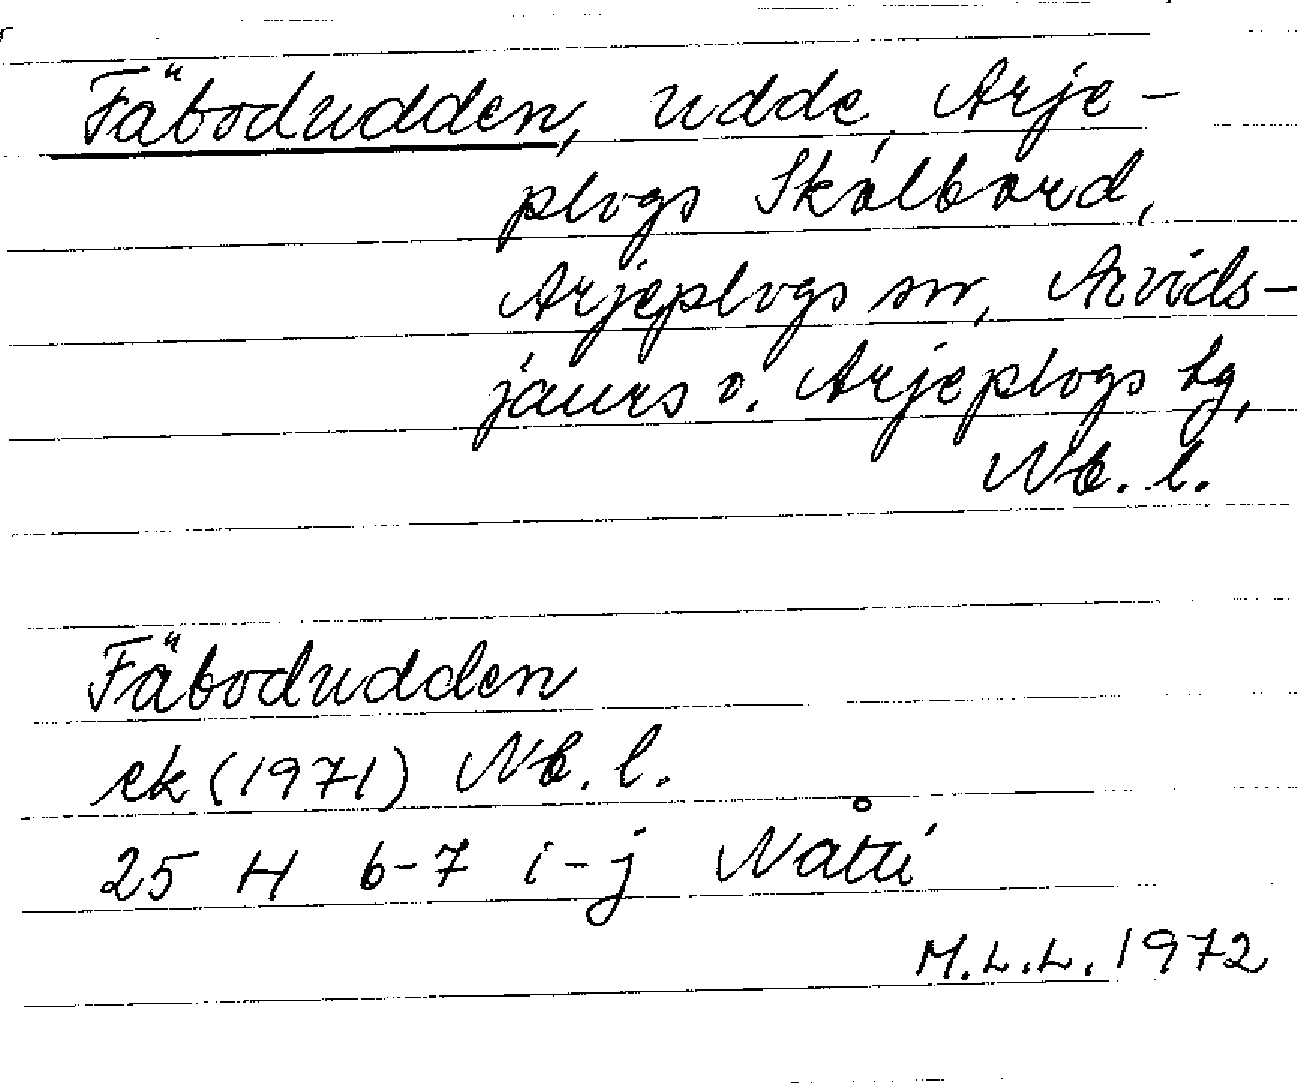 Fäbodudden, udde, Arje-
plogs
Arjeplogs sn, Arvids-
jaurs o. Arjeplogs tg,
Nb. l.
Fäbodudden
ek (1971) Nb. l.
25 H 6-7 i-j Nåtti
M.L.L. 1972